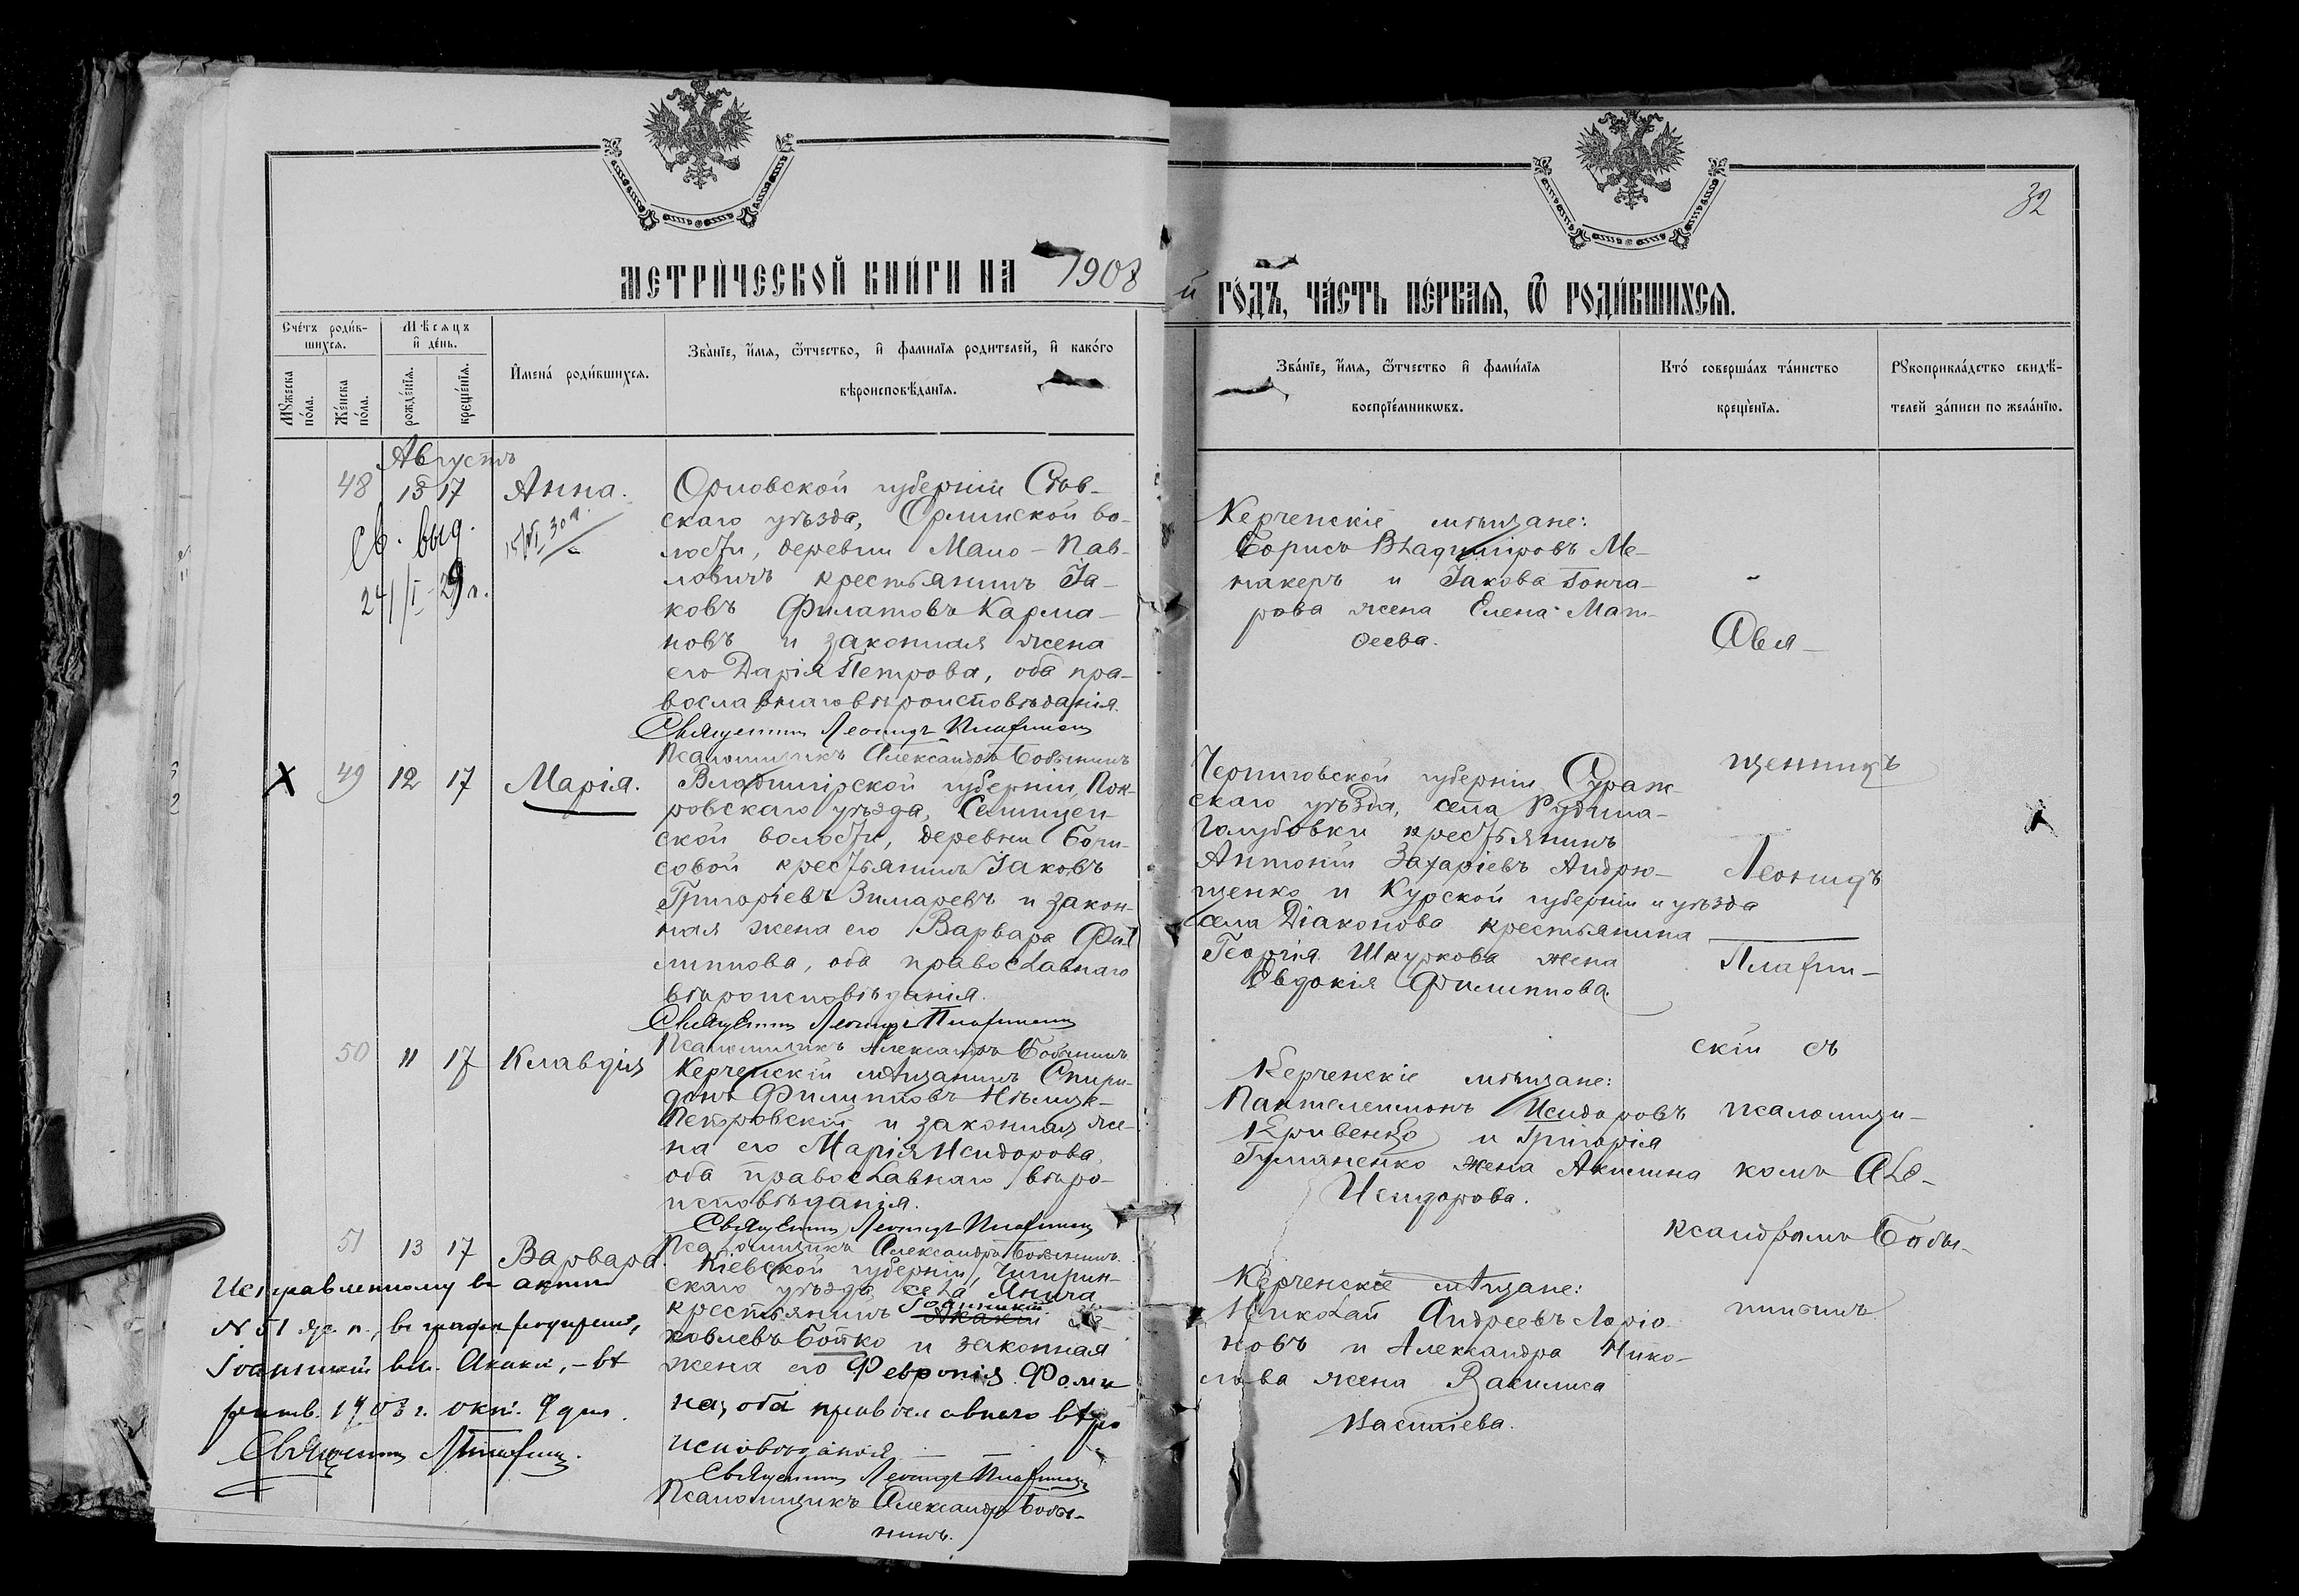 32
МЕТРИ́ЧЕСКОЙ КНИ́ГИ НА 1908
й ГО́ДЪ, ЧА́СТЬ ПЕ́РВАЯ, Ѿ РОДИ́ВШИХСЯ.
Сче́тъ роди́в-
шихся.
Му́жеска
по́ла.
Же́нска
по́ла.
Мѣ́сяцъ
и҆ де́нь.
рожде́нїѧ.
креще́нїѧ.
И҆мена́ роди́вшихся.
Зва́нїе, и҆́мя, ѻ҆́тчество, и҆ фами́лїя роди́телей, и҆ како́го
вѣроисповѣ́данїя.
Зва́нїе, и҆́мя, ѻ҆́тчество и҆ фами́лїя
воспрїе́мникѡвъ.
Кто́ соверша́лъ та́инство
креще́нїя.
Рꙋкоприкла́дство свидѣ́-
телей за́писи по жела́нїю.
Августъ
48 15 17 Анна.
Св. выд.
24/I-29 г.
Орловской губерніи Сѣв-
скаго уѣзда, Орлинской во-
лости, деревни Мало-Пав-
ловичъ крестьянинъ Іа-
ковъ Филатовъ Карма-
новъ и законная жена
его Дарія Петрова, оба пра-
вославнаго вѣроисповѣданія.
Священникъ Леонидъ
Псаломщикъ Александръ Бобынинъ
Керченскіе мѣщане:
Борисъ Владиміровъ Ме-
накеръ и Іакова Гонча-
рова жена Елена Мат-
ѳеева.
49 12 17 Марія.
Владимірской губерніи, Пок-
ровскаго уѣзда,
ской волости, деревни Бори-
совой крестьянинъ Іаковъ
Григоріевъ Зимаревъ и закон-
ная жена его Варвара Фи-
липпова, оба православнаго
вѣроисповѣданія.
Священникъ Леонидъ
Псаломщикъ Александръ Бобынинъ
Черниговской губерніи Сураж-
скаго уѣзда, села Рудни-
Голубовки крестьянинъ
Антоній Захаріевъ Андрю-
щенко и Курской губерніи и уѣзда
села Діаконова крестьянина
Георгія Шкуркова жена
Евдокія Филиппова.
50 11 17 Клавдія
Керченскій мѣщанинъ Спири-
донъ Филипповъ
Петровскій и законная же-
на его Марія Исидорова,
оба православнаго вѣро-
исповѣданія.
Священникъ Леонидъ
Псаломщикъ Александръ Бобынинъ
Керченскіе мѣщане:
Пантелеимонъ Исидоровъ
Кривенко и Григорія
Гуманенко жена Акилина
Исидорова.
51 13 17 Варвара.
Кіевской губерніи, Чигирин-
скаго уѣзда, села Янича
крестьянинъ Іоанникій Акакій Іа-
ковлевъ Бойко и законная
жена его Февронія Фоми-
на, оба православнаго вѣро
исповѣданія.
Священникъ Леонидъ
Псаломщикъ Александръ Бобы-
нинъ.
Керченскіе мѣщане:
Николай Андреевъ Ларіо-
новъ и Александра Нико-
лаева жена Василиса
Исправленному въ актѣ
N 51 въ графѣ
Іоанникій вм. Акакій, – вѣ
1908 г. окт. 9 дня.
Священникъ
Свя-
щенникъ
Леонидъ
скій съ
псаломщи-
комъ Але-
ксандромъ Бобы-
нинымъ